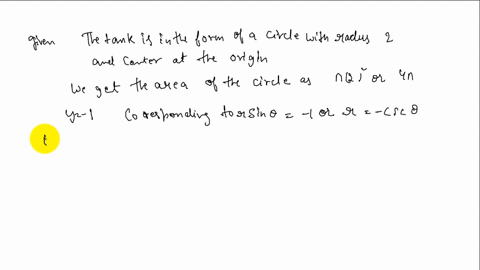 given The tank is in the form of a circle with radius 2
and center at the origin
We get the area of the circle as π(2)² or 4π
y=-1 Corresponding to r sin θ = -1 or r = -csc θ
t